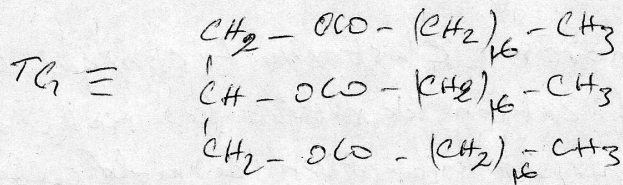 CH2 - OCO - (CH2)16 - CH3
TG ≡ CH - OCO - (CH2)16 - CH3
CH2 - OCO - (CH2)16 - CH3